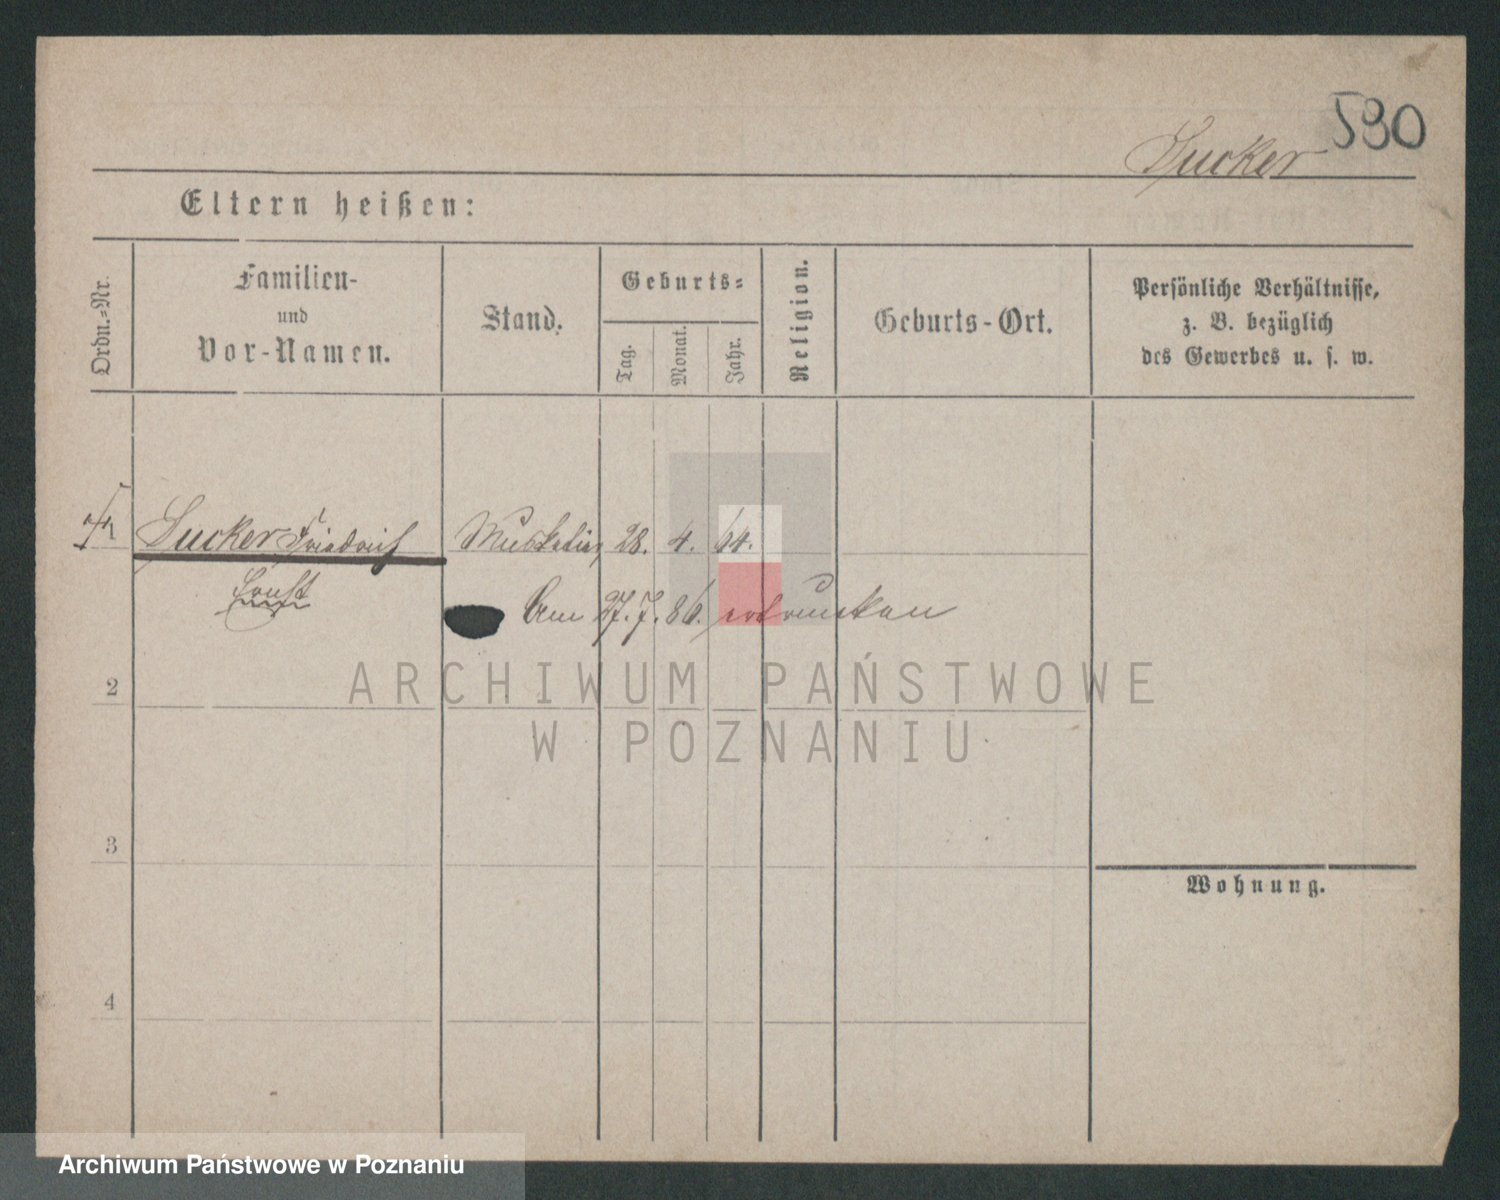 590
Sucker
Eltern heißen:
Ordn.-Nr.
Familien-
und
Vor-Namen.
Stand.
Geburts-
Tag.
Monat.
Jahr.
Religion.
Geburts-Ort.
Persönliche Verhältnisse,
z. B. bezüglich
des Gewerbes u. s. w.
1
Sucker Friedrich Musketier, 28. 4. 64.
Ernst
Am 27. 7. 86. ertrunken
2
3
4
Wohnung.
ARCHIWUM PAŃSTWOWE
W POZNANIU
Archiwum Państwowe w Poznaniu